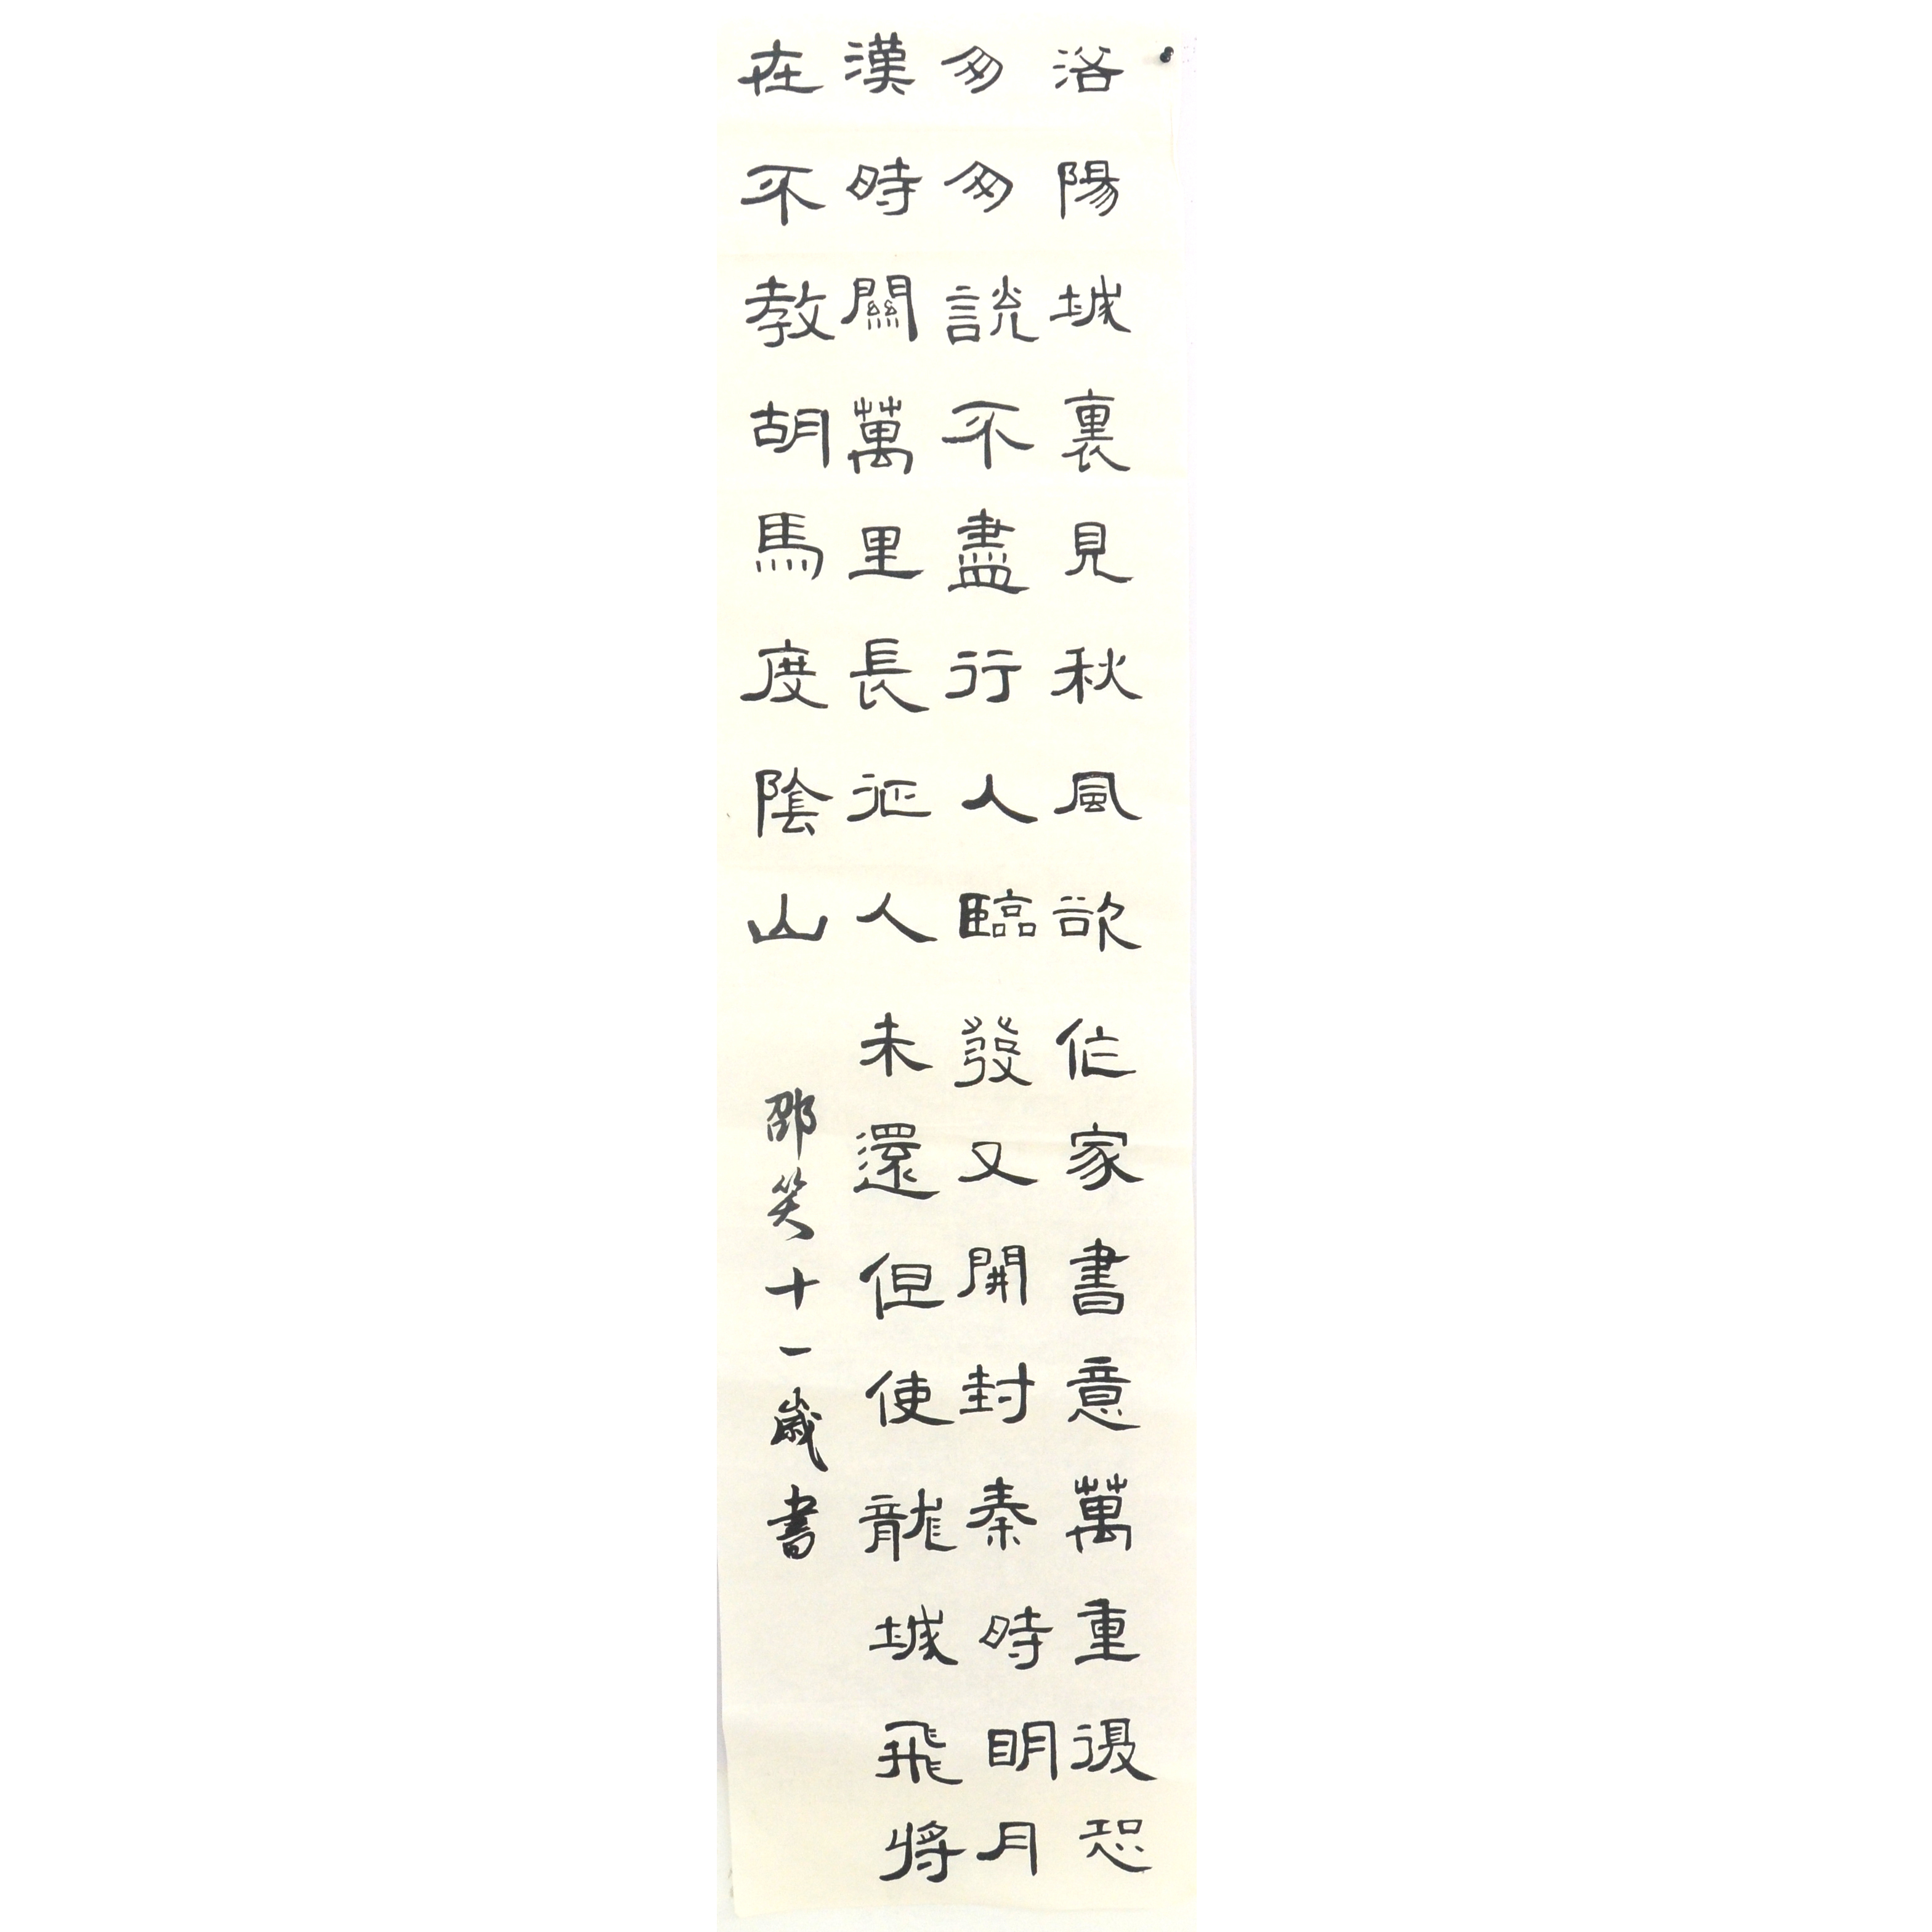 洛陽城裏見秋風欲作家書意萬重復恐
匆匆說不盡行人臨發又開封秦時明月
漢時關萬里長征人未還但使龍城飛將
在不教胡馬度陰山
邵笑十一歲書